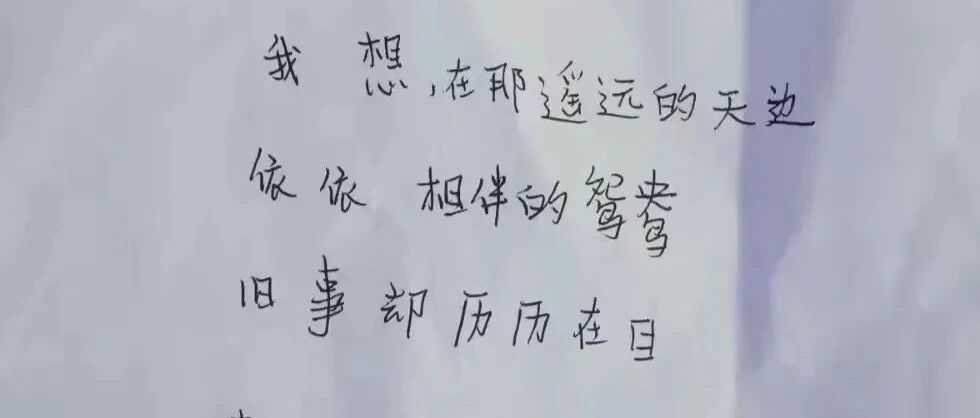 我想,在那遥远的天边
依依相伴的鸳鸯
旧事却历历在目